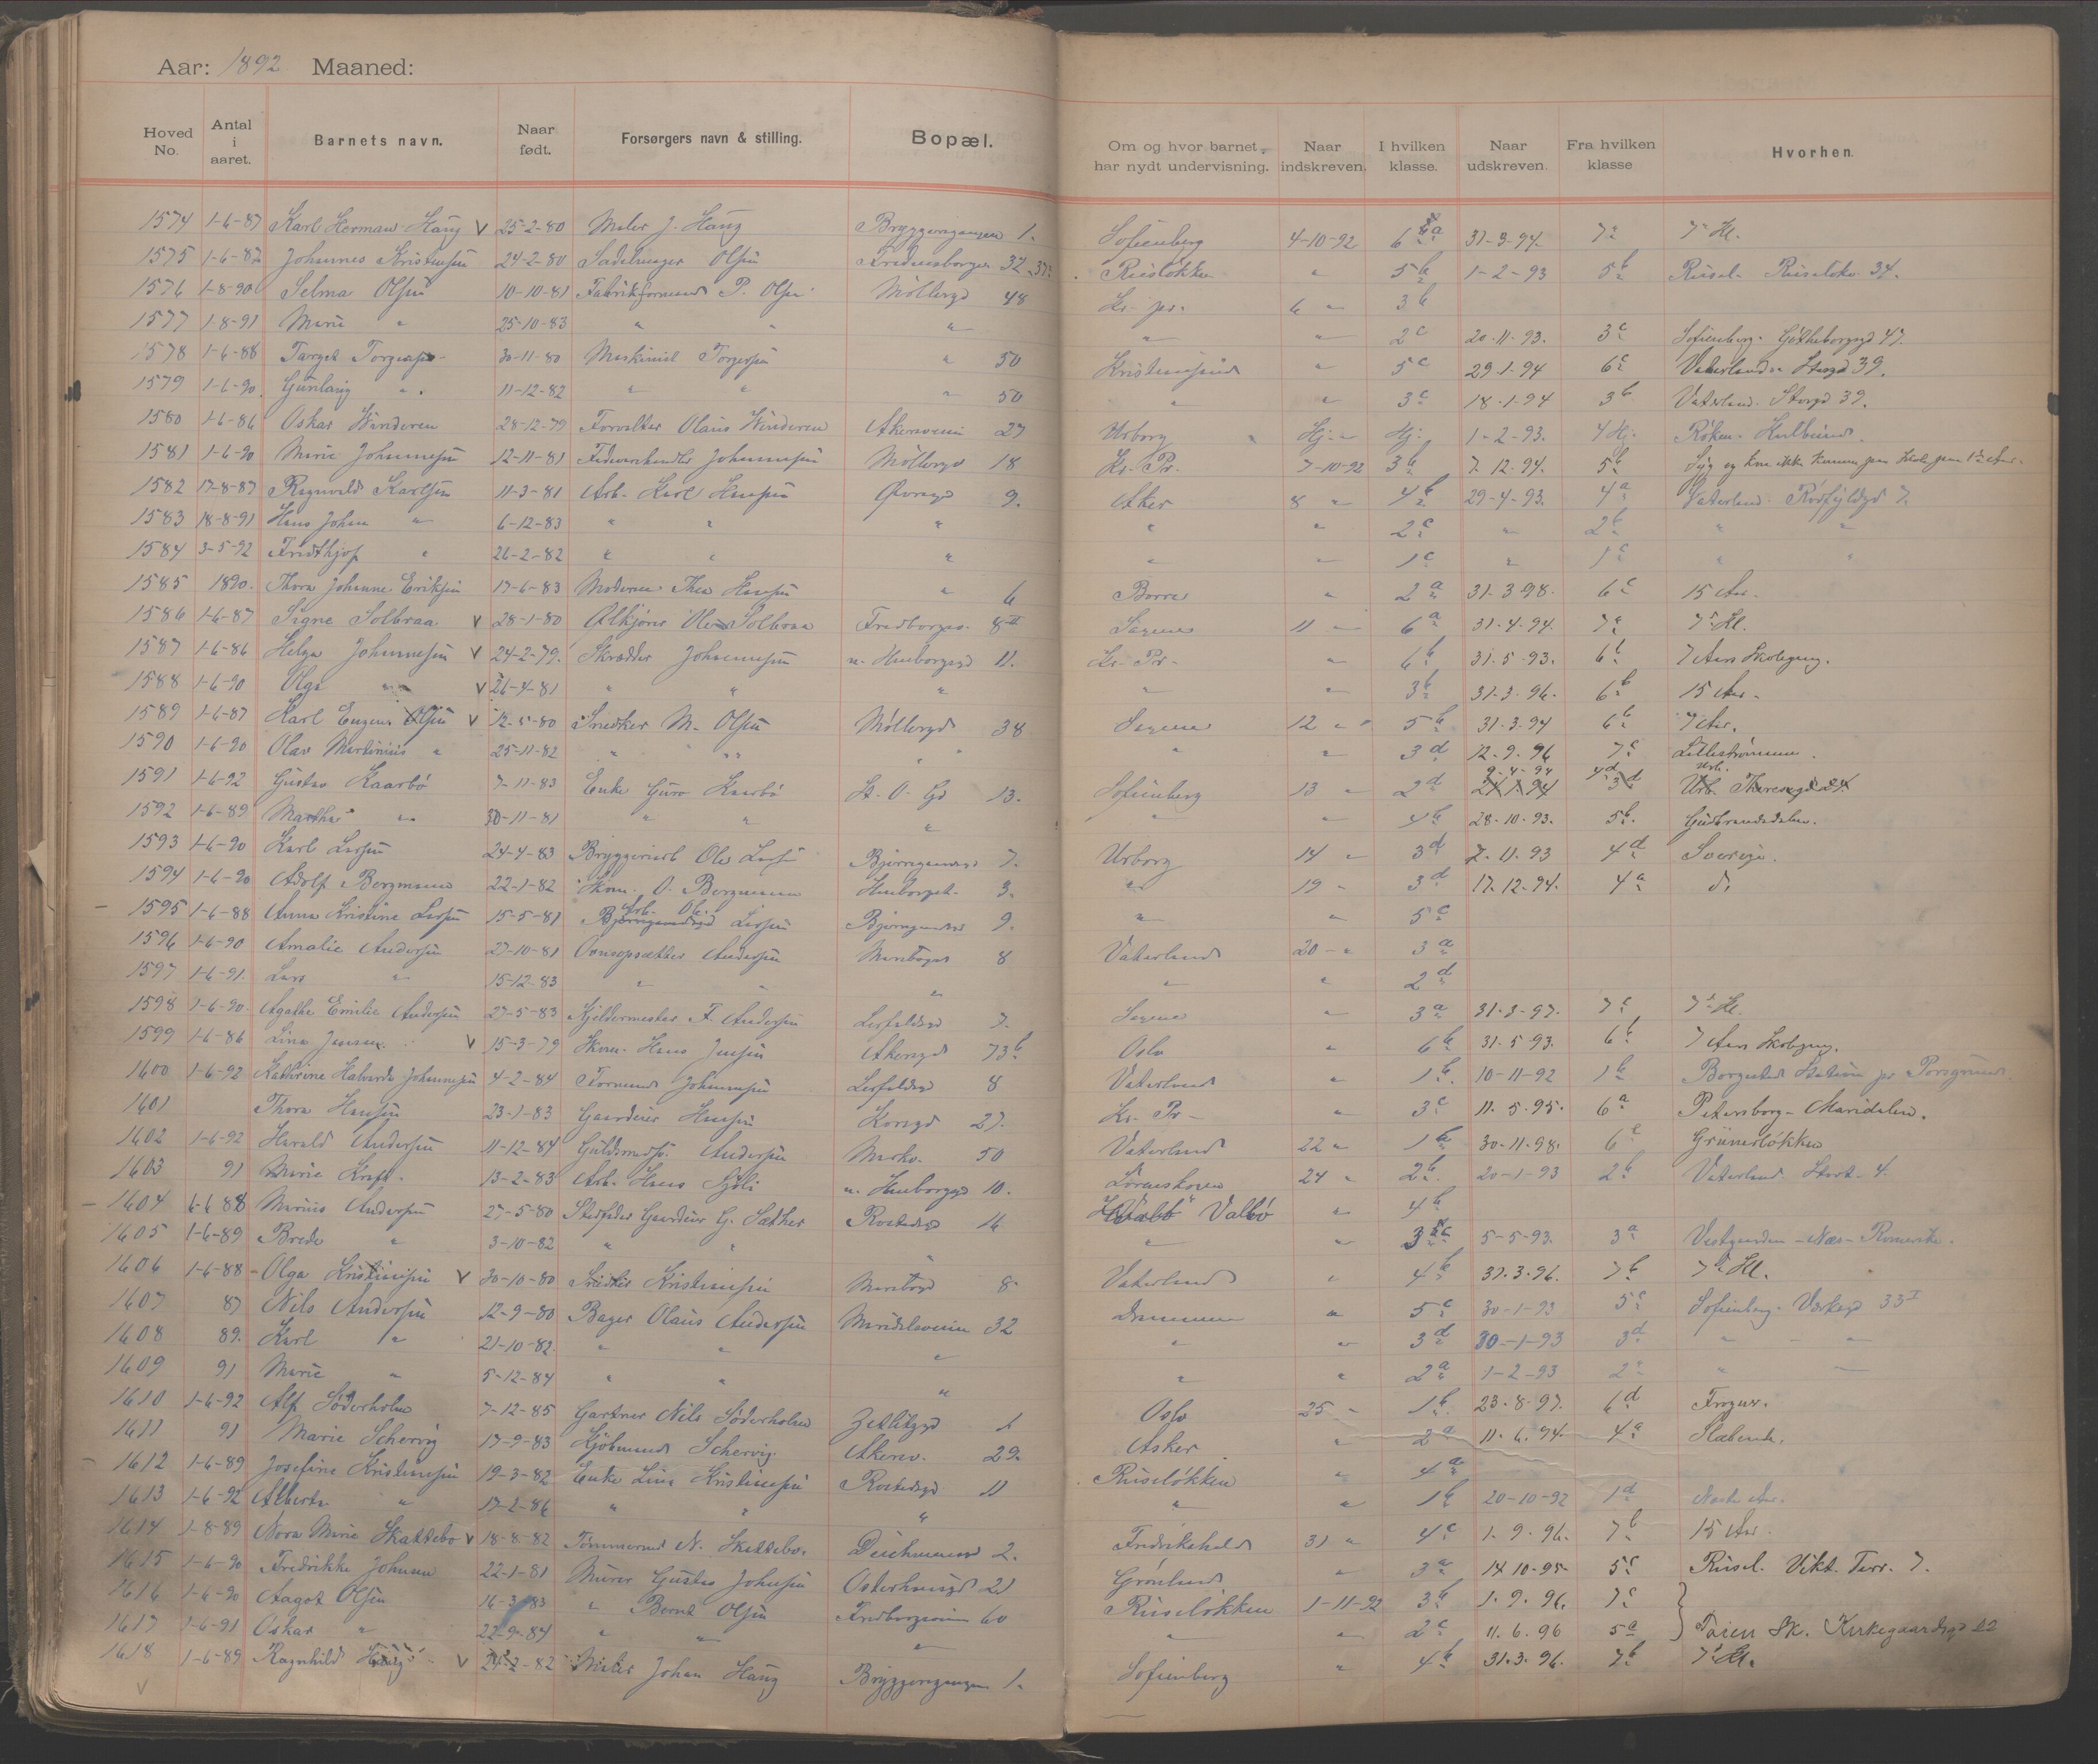 Aar: 1892 Maaned:
Hoved No. Antal i aaret. Barnets navn. Naar født. Forsørgers navn & stilling. Bopæl. Om og hvor barnet har nydt undervisning. Naar indskreven. I hvilken klasse. Naar udskreven. Fra hvilken klasse Hvorhen.
1574 1-6-87 Karl Herman Haug V 25-2-80 Maler J. Haug Bryggerigangen 1. Sofienberg 4-10-92 6 a 31-3-94 7 7 Kl.
1575 1-6-87 Johannes Kristensen 24-2-80 Sadelmager Olsen 32 Ruseløkken " 5 b 1-2-93 5 b Rusel. Ruseløkv 34.
1576 1-8-90 Selma Olsen 10-10-81 Fabrikformand P. Olsen Møllergd 48 Kr. pr. 6 " 3 b
1577 1-8-91 Marie " 25-10-83 " " " " " 2 c 20-11-93. 3 c Sofienberg. Gøtheborggd 47.
1578 1-6-88 30-11-80 Maskinist Torgersen " 50 Kristiansund " 5 c 29-1-94 6 c Vaterland. Storgd 39.
1579 1-6-90. Gunlaug " 11-12-82 " " " 50 " " 3 c 18-1-94 3 b Vaterland. Storgd 39.
1580 1-6-86 Oskar Winderen 28-12-79 Forvalter Olaus Winderen Akersveien 27 Uxborg Hj. " Hj. 1-2-93. 4 Hj. Røken.
1581 1-6-90 Marie Johannesen 12-11-81 Johannesen Møllergd 18 Kr. Pr. 7-10-92 3 b 7-12-94. 5 b Syg og kan ikke
1582 17-8-87 Ragnvald Karlsen 11-3-81 Arb. Karl Hansen Øvregd 9. Aker 8 " 4 b 29-4-93. 4 a Vaterland. 7.
1583 18-8-91 Hans Johan " 6-12-83 " " " " " 2 c " 2 b " "
1584 3-5-92 Fridthjof " 26-2-82 " " " " " 1 c " 1 c " "
1585 1890. Thora Johanne Eriksen 17-6-83 Moderen Thea Hansen " 6 Borre " 2 a 31-3-98. 6 c 15 Aar.
1586 1-6-87 Signe Solbraa V 28-1-80 Ølkjører Ole Solbraa Fredborgv. 8 II Sagene 11 " 6 a 31-4-94. 7 a 7 Kl.
1587 1-6-86 Helga Johannesen V 24-2-79. Skrædder Johannesen n. Hauborggd 11. Kr. Pr. " 6 b 31-5-93. 6 b 7 Aars Skolegang.
1588 1-6-90 Olga " V 26-4-81 " " " " " 3 b 31-3-96. 6 b 15 Aar.
1589 1-6-87 Karl Eugen Olsen V 12-5-80 Snedker M. Olsen Møllergd 38 Sagene 12 " 5 b 31-3-94 6 b 7 Aar.
1590 1-6-90 Olav Martinius " 25-11-82 " " " " " 3 d 12-9-96 7 c Lillestrømmen.
1591 1-6-92 Gustav Kaarbø 7-11-83 Enke Guro Kaarbø St. O. Gd 13. Sofienberg 13 " 2 d 9-4-94 4 d Urb. Theresegd 24
1592 1-6-89 Martha " 30-11-81 " " " " " 4 b 28-10-93. 5 b. Gudbrandsdalen.
1593 1-6-90 Karl Larsen 24-4-83 Bryggeriarb Ole Larsen 7. Uxborg 14 " 3 d 7-11-93 4 d Sverige.
1594 1-6-90 Adolf Bergmann 22-1-82 Skom. O. Bergmann 3. " 19 " 3 d 17-12-94. 4 a d.
1595 1-6-88 Anna Kristine Larsen 15-5-81 Arb. Ole Larsen 9. " " 5 c
1596 1-6-90 Amalie Andersen 27-10-81 Ovnsopsætter Andersen Maribogd 8 Vaterland 20 " 3 a
1597 1-6-91. Lars " 15-12-83 " " " " " 2 d
1598 1-6-90. Agathe Emilie Andersen 27-5-83 Kjeldermester F. Andersen 7. Sagene " 3 a 31-3-97. 7 c 7 Kl.
1599 1-6-86 Lina Jensen V 15-3-79 Skom. Hans Jensen Akersgd 73 b Oslo " 6 b 31-5-93. 6 b 7 Aars Skolegang.
1600 1-6-92 Kathrine Halvarda Johannesen 4-2-84 Formand Johannesen 8 Vaterland " 1 b. 10-11-92 1 b Borgestad Station pr Porsgrund.
1601 Thora Hansen 23-1-83 Gaardeier Hansen Korsgd 27. Kr. Pr. " 3 c 11-5-95. 6 a Petersborg - Maridalen.
1602 1-6-92 Harald Andersen 11-12-84 Guldsmedsv. Andersen Markv. 50 Vaterland 22 " 1 b 30-11-98. 6 Grünerløkken
1603 91 Marie 13-2-83 Arb. Hans n. Hauborggd 10. Lørenskogen 24 " 2 b 20-1-93 2 b Vaterland. 4.
1604 6-6-88 Marius Andersen 27-5-80 Stedfader Gaardeier G. Sæther Rostedsgd 16 Valbø " 4 b
1605 1-6-89 Brede " 3-10-82 " " " " " 3 c 5-5-93. 3 a - Næs - Romerike.
1606 1-6-88 Olga Kristiansen V 30-10-80 Snedker Kristiansen Maribogd 8 Vaterland " 4 b 31-3-96. 7 b 7 Kl.
1607 87 Nils Andersen 12-9-80 Bager Olaus Andersen Maridalsveien 32 Drammen " 5 c 30-1-93 5 c Sofienberg. Verksgd 33 I
1608 89. Karl " 21-10-82 " " " " " 3 d 30-1-93 3 d " - "
1609 91 Marie " 5-12-84 " " " " " 2 a 1-2-93 2 " "
1610 1-6-92 Alf Söderholm 7-12-85 Gartner Nils Söderholm Zetlitzgd 1 Oslo 25 " 1 b. 23-8-97. 6 d Frogner.
1611 91 Marie Schervig 17-9-83 Kjøbmand Schervig. Akersv. 29. Asker " 2 a 11-6-94. 4 a Slabende.
1612 1-6-89 Josefine Kristiansen 19-3-82 Enke Lina Kristiansen Rostedsgd 11 Ruseløkken " 4 a
1613 1-6-92 Alberta " 17-2-86 " " " " " 1 b 20-10-92 1 d Næste Aar.
1614 1-8-89 Nora Marie Skattebo V 18-8-82 Tømmermd N. Skattebo. Deichmansgd 2. Fredrikshald 31 " 4 c 1-9-96. 7 b 15 Aar.
1615 1-6-90 Fredrikke Johnsen 22-1-81 Murer Gustav Johnsen Osterhausgd 21 Grønland " 3 a 14-10-95. 5 c Rusel. Vikt. Terr. 7.
1616 1-6-90 Aagot Olsen 16-3-83 " Bernt Olsen Fredborgveien 60 Ruseløkken 1-11-92 3 b 1-9-96. 7 c
1617 1-6-91 Oskar " 22-9-84 " " " " " 2 c 11-6-96 5 a Tøien Sk. Kirkegaardsgd 22
1618 1-6-89 Ragnhild Haug V 24-2-82 Maler Johan Haug Bryggerigangen 1. Sofienberg " 4 b 31-3-96. 7 b 7 Kl.
V